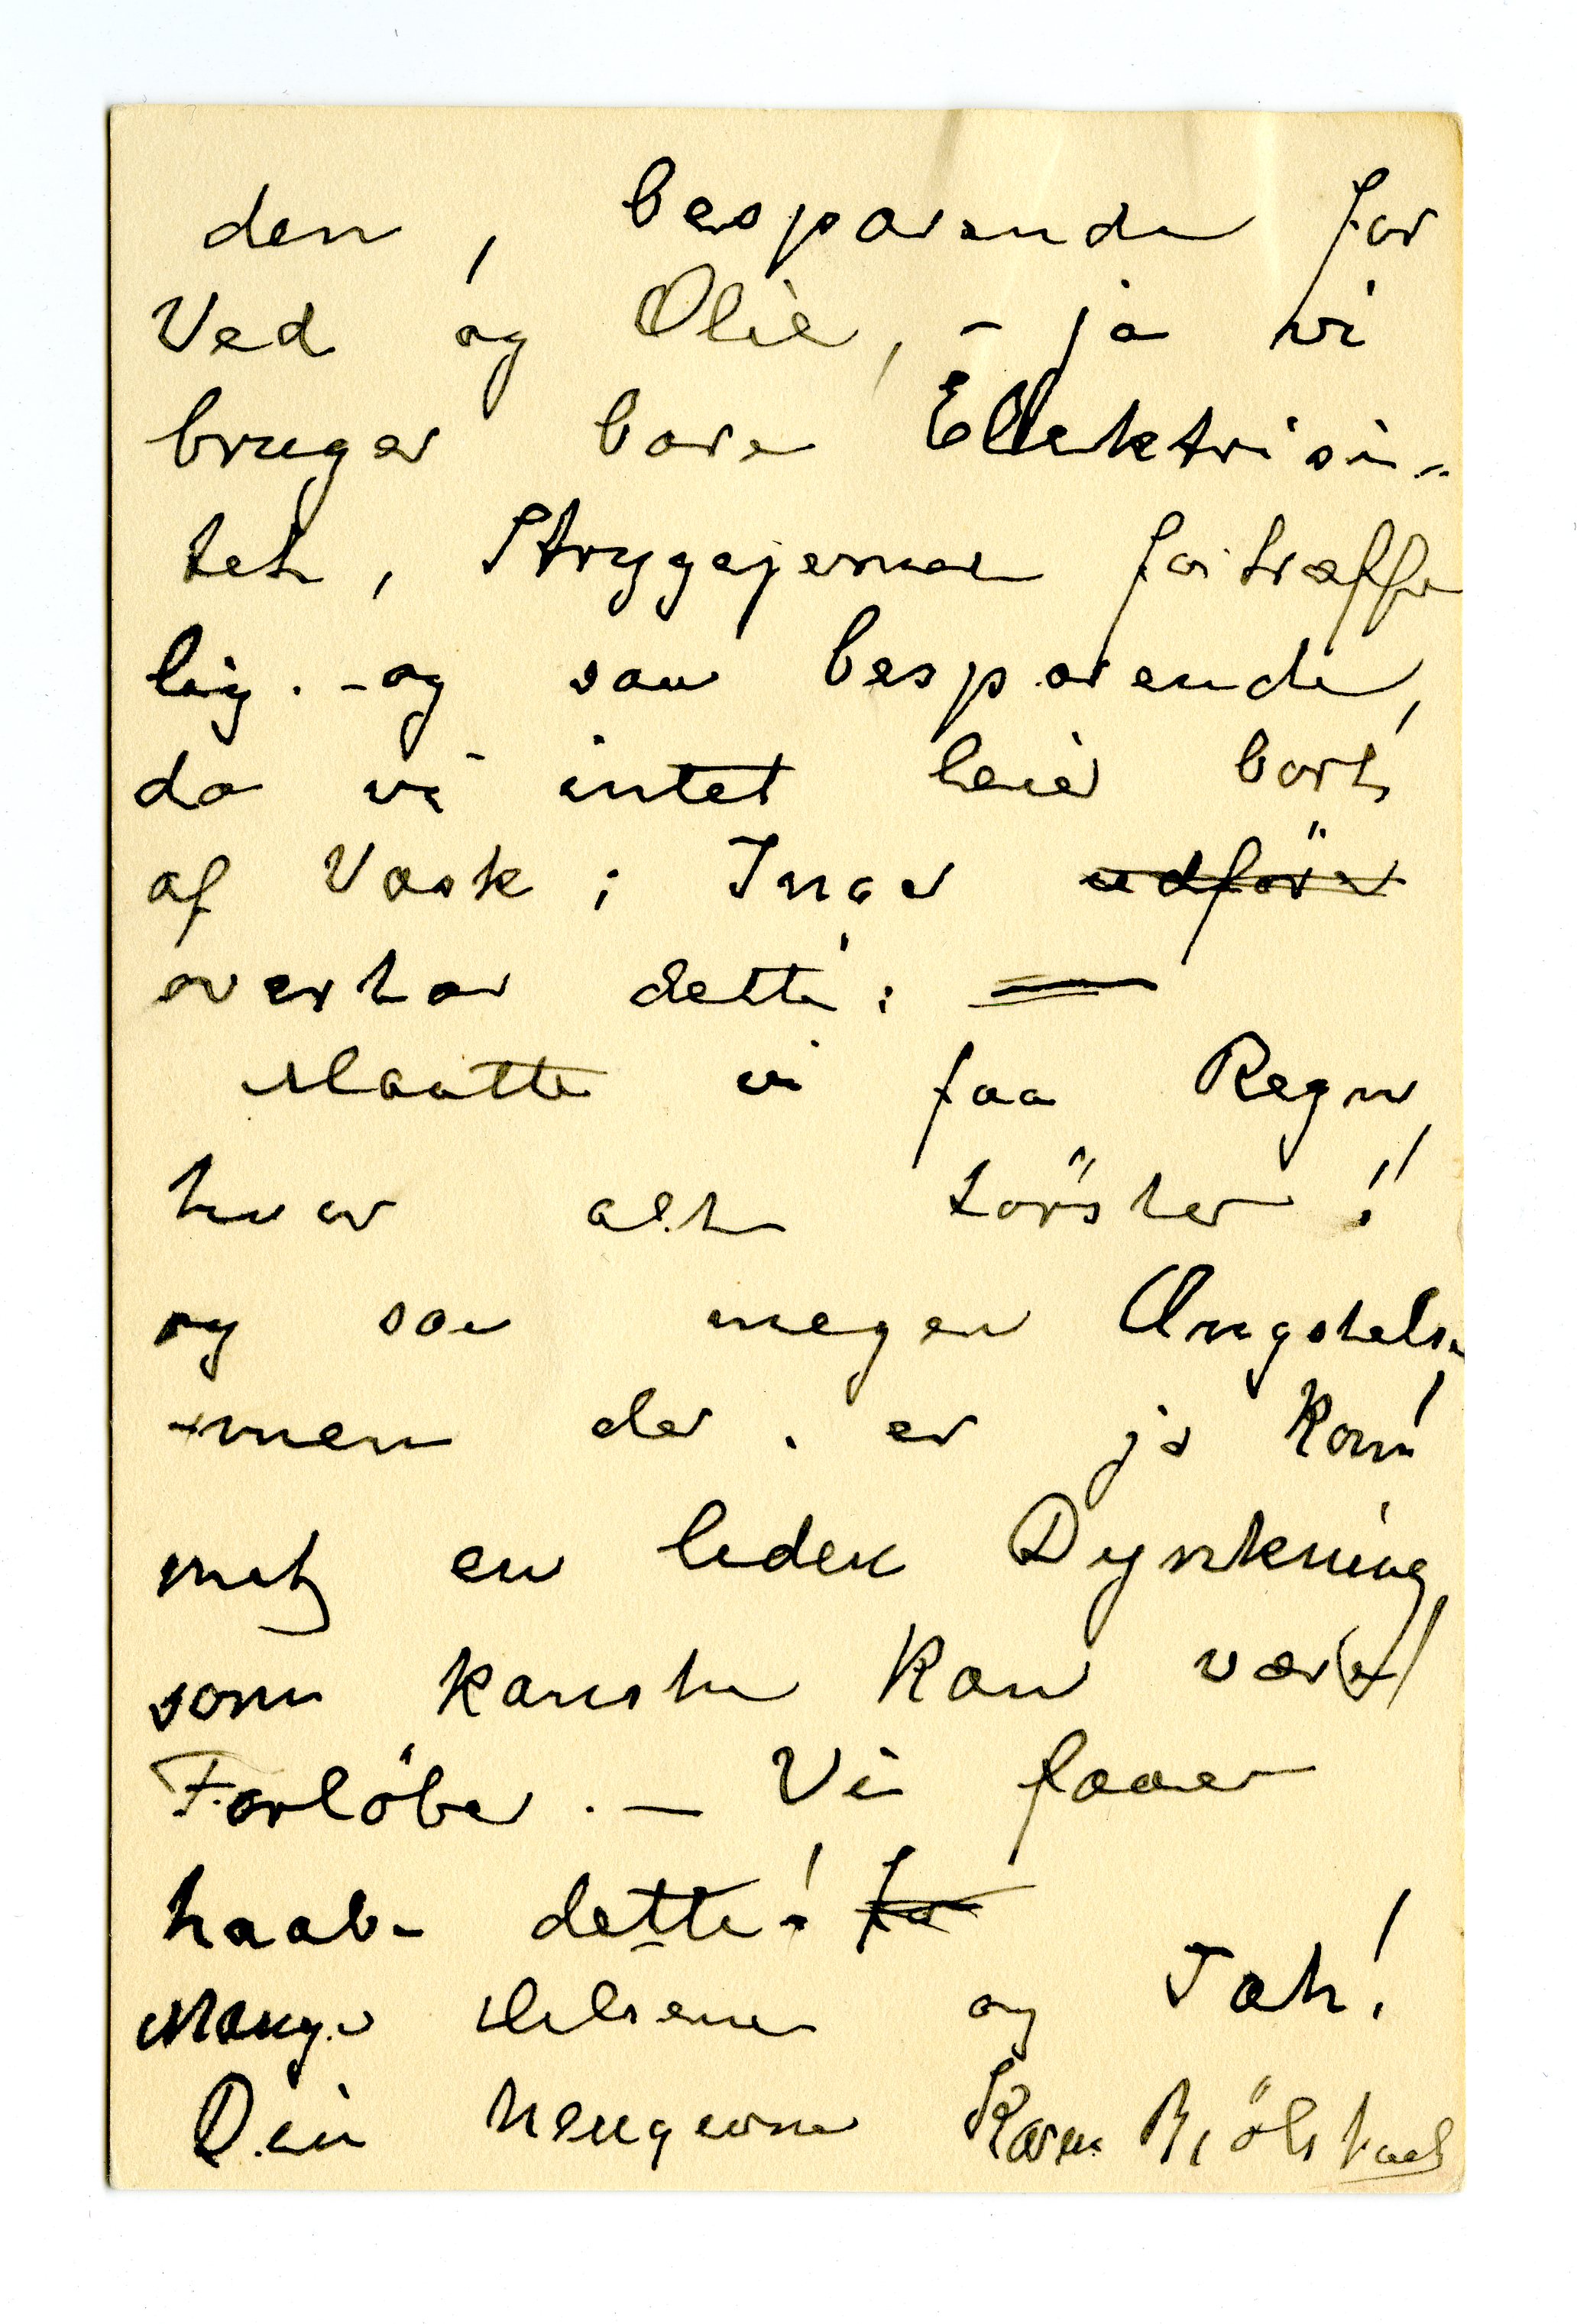 den, besparende for
Ved og Olie, - ja vi
bruger bare Ellektrisi-
tet, Strygejernet fortræffe
lig. - og saa besparende,
da vi intet leier bort
af Vask; Inger udför
overtar dette: —
Maatte vi faa Regn,
hvor alt törster!
og saa megen Ængstelse
- men der er ja kom
met en liden Dyrkning,
som kanske kan være
Forlöber. — Vi faaer
haabe dette! for
Mange Hilsener og Tak!
Din hengivne Karen Bjölstad